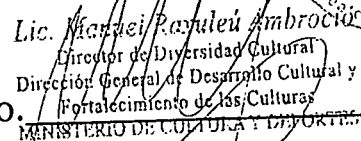 Lic. Manuel Rayuleú Ambrocio
Director de Diversidad Cultural
Dirección General de Desarrollo Cultural y
o. Fortalecimiento de las Culturas
MINISTERIO DE CULTURA Y DEPORTES